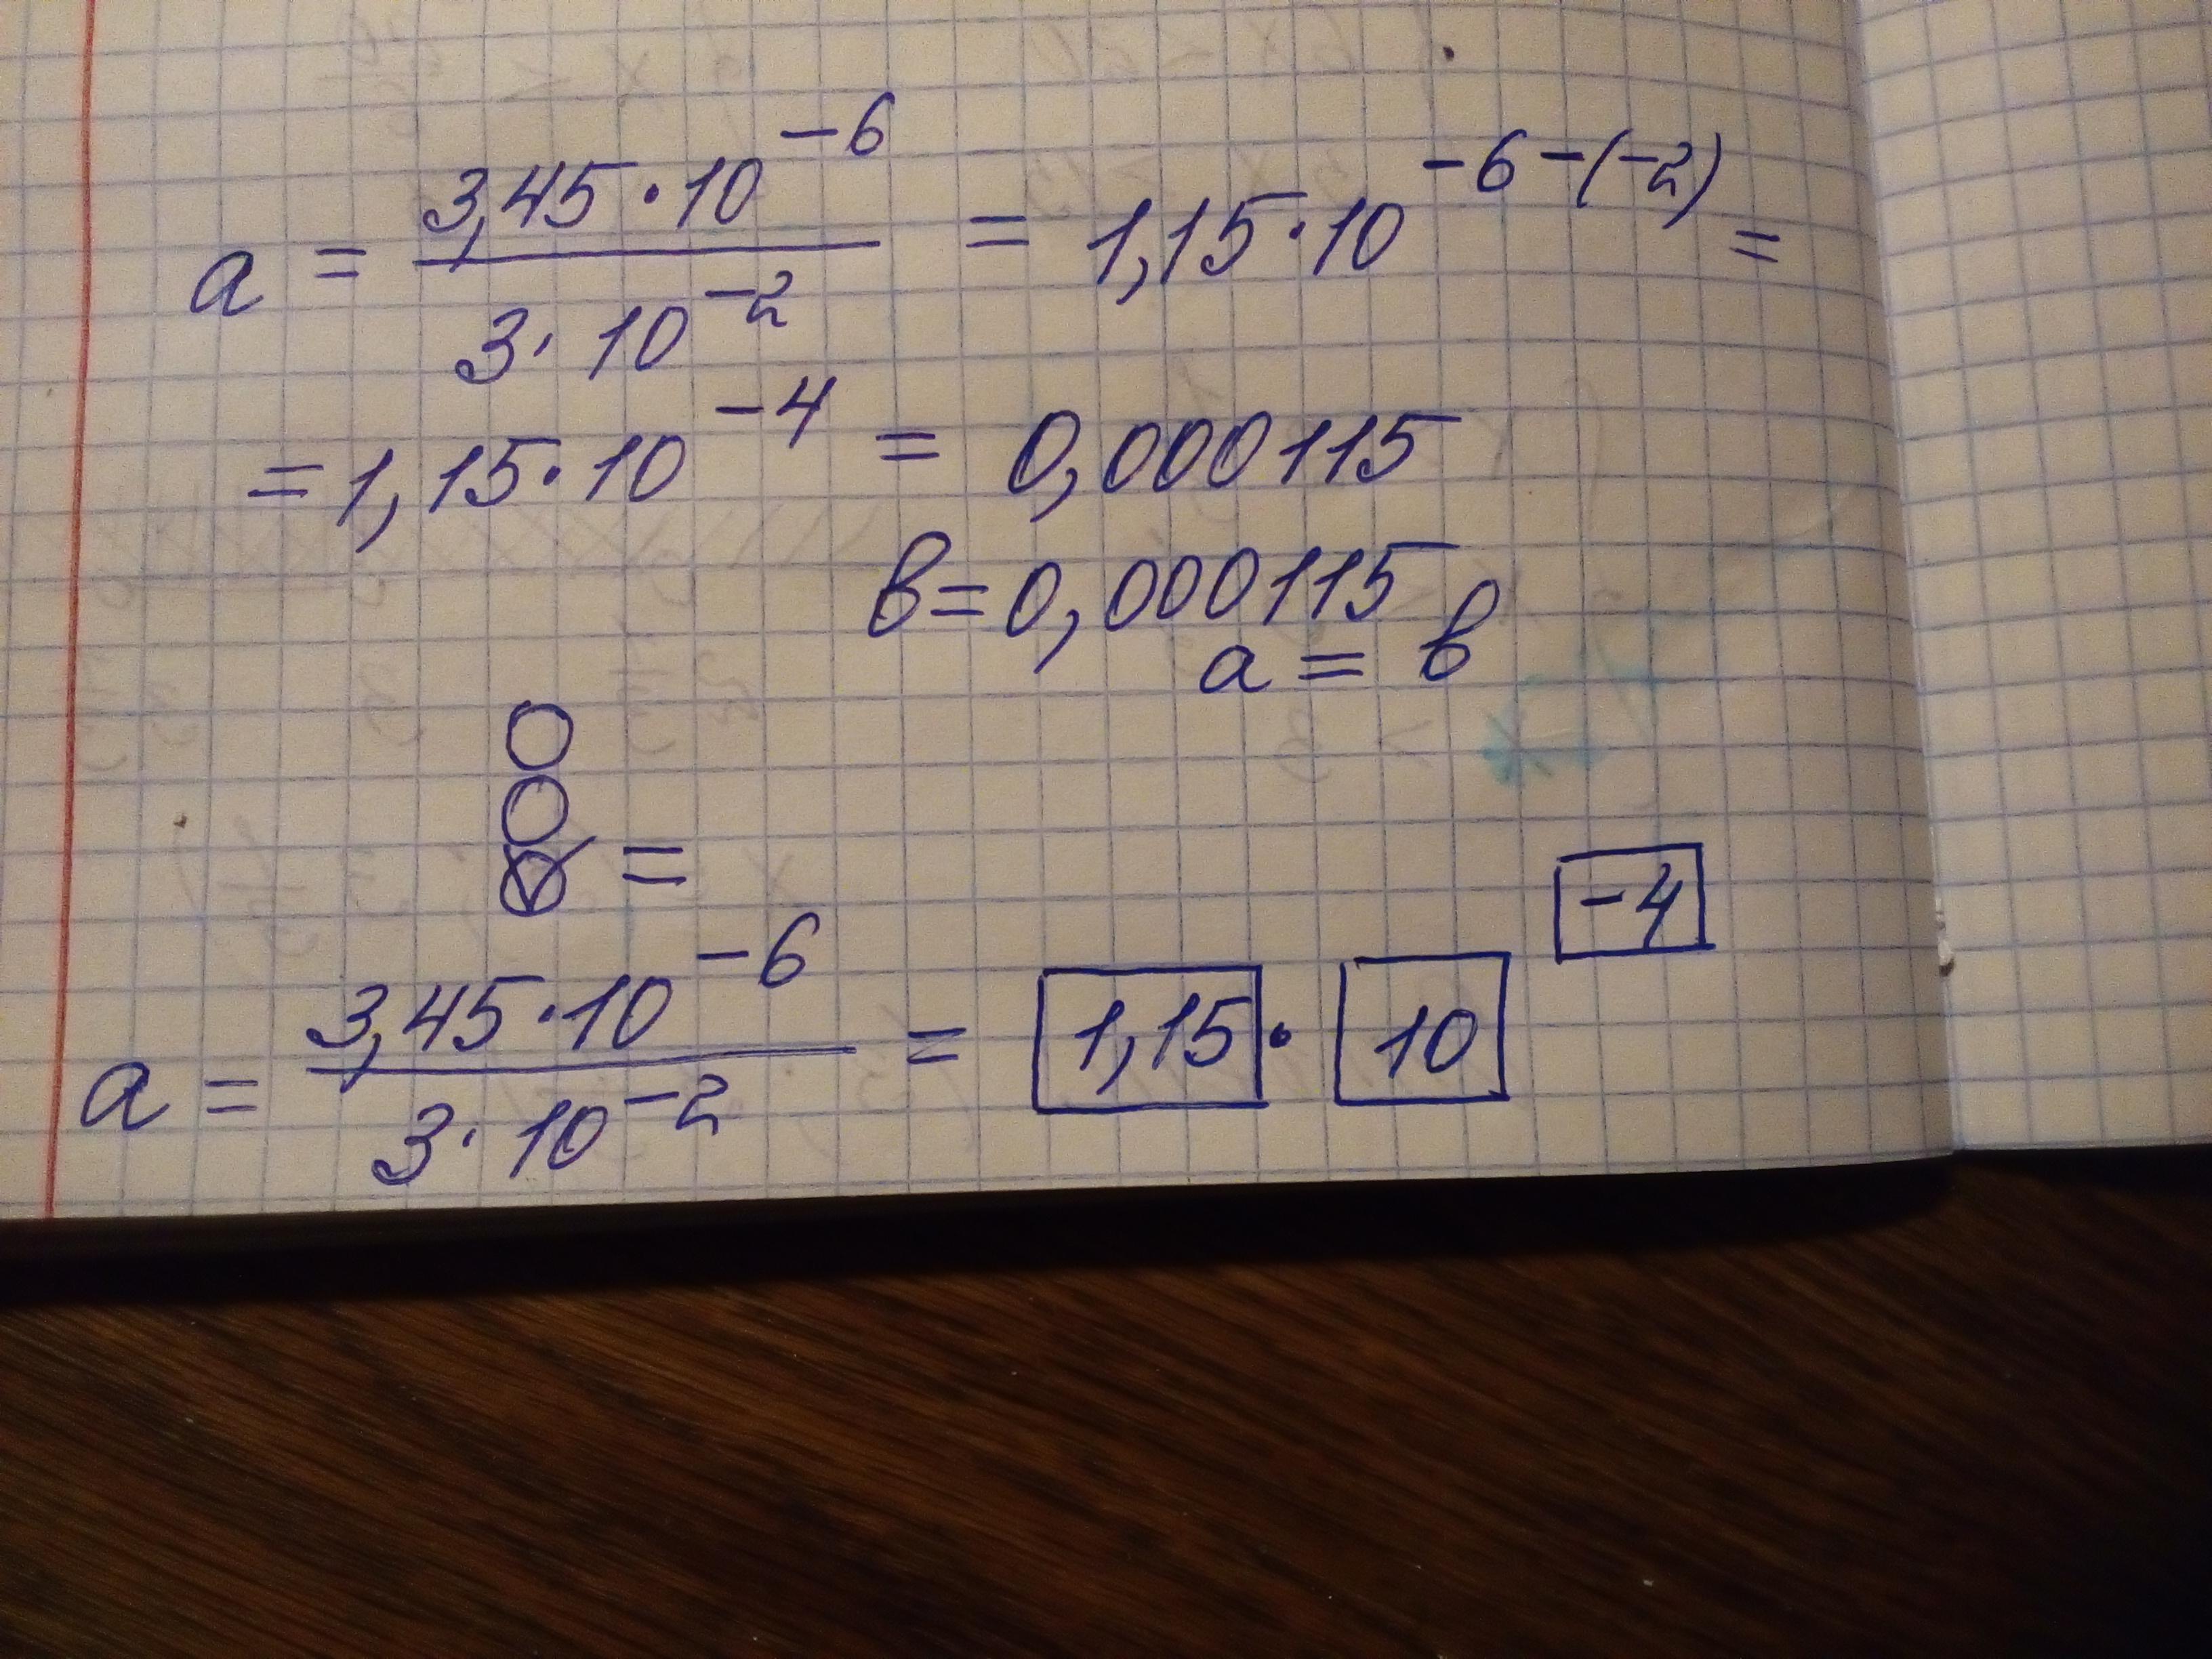 a = 3,45·10^-6 / 3·10^-2 = 1,15·10^-6-(-2) =
= 1,15·10^-4 = 0,000115
в = 0,000115
a = в
=
a = 3,45·10^-6 / 3·10^-2 = 1,15 · 10 ^-4